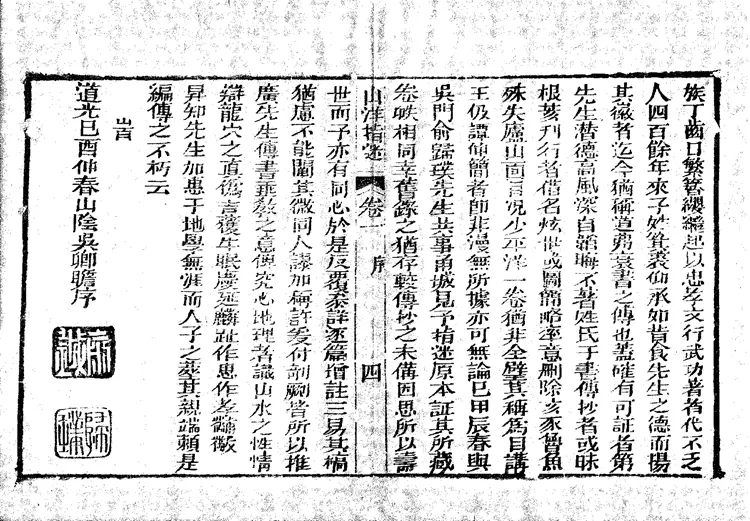 族丁齒口繁簪纓繼起以忠孝文行武功著者代不乏
人四百餘年來子姓箕裘仰承如昔食先生之德而揚
其徽者迄今猶稱道弗衰書之傳也蓋確有可証者第
先生潛德高風深自韜晦不著姓氏于書傳抄者或昧
根荄刊行者借名炫世或圖簡略率意刪除亥豕魯魚
殊失廬山面目況少平洋一卷猶非全璧其稱爲目講
王伋譚仲簡者師非漫無所據亦可無論已甲辰春與
吳門俞歸璞先生共事甬城見予指迷原本証其所藏
卷帙相同幸舊錄之猶存較傳抄之未備因思所以壽
山洋指迷 卷一 序 四
世而予亦有同心於是反覆叅詳逐篇增註三易其稿
猶慮不能闡其微同人謬加稱許爰付剞劂皆所以推
廣先生傳書垂敎之意俾究心地理者識山水之性情
辯龍穴之真僞吉獲牛眠慶延麟趾作忠作孝黼黻
昇知先生加惠于地學無涯而人子之葬其親端賴是
編傳之不朽云
旹
道光己酉仲春山陰吳卿瞻序